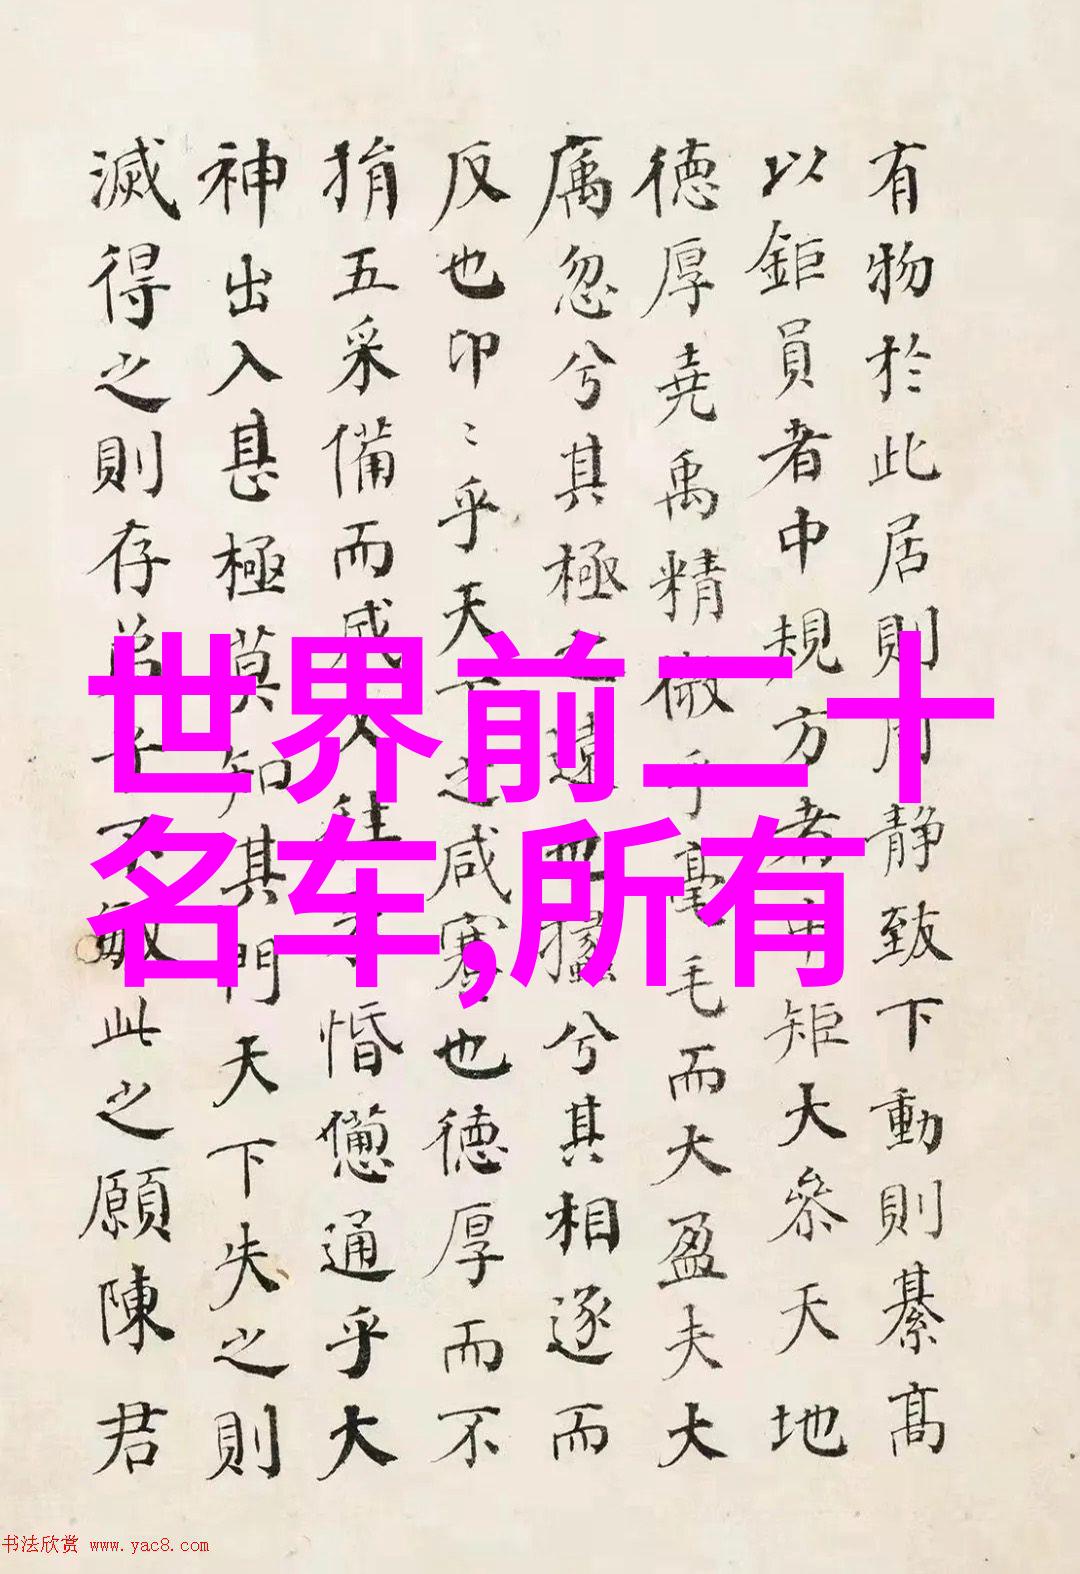 有物於此居則周静致下動則綦高
以鉅員者中規方者中矩大参天地
德厚堯禹精微乎毫毛而大盈夫大
厲忽兮其極之遠也攭兮其相逐而
反也卬〻乎天下之咸蹇也德厚而不
捐五采備而成文往来惛憊通乎大
神出入甚極莫知其門天下失之則
滅得之則存弟子不敏此之願陳君
世界前二十
名车,所有
书法欣赏 www.yac8.com